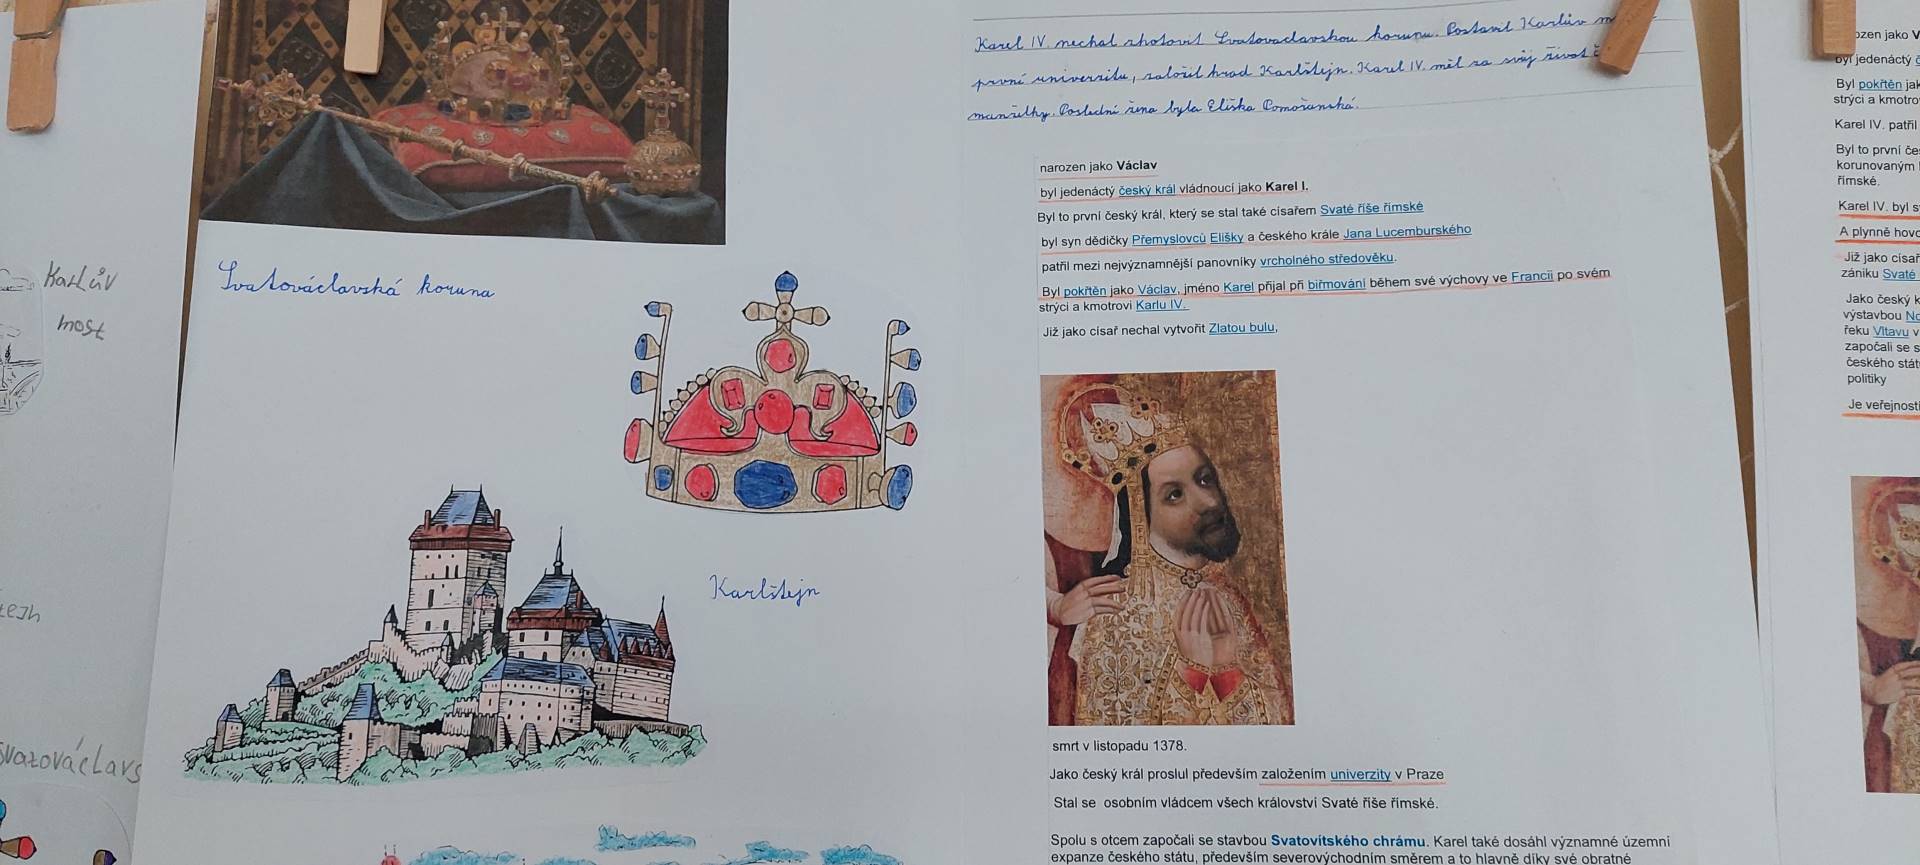 Karlův
most
svazováclavs
Svatováclavská koruna
Karlštejn
Karel IV. nechal zhotovit Svatováclavskou korunu. Postavil Karlův
první univerzitu, založil hrad Karlštejn. Karel IV. měl za svůj život
manželky. Poslední žena byla Eliška Pomořanská.
narozen jako Václav
byl jedenáctý český král vládnoucí jako Karel I.
Byl to první český král, který se stal také císařem Svaté říše římské
byl syn dědičky Přemyslovců Elišky a českého krále Jana Lucemburského
patřil mezi nejvýznamnější panovníky vrcholného středověku.
Byl pokřtěn jako Václav, jméno Karel přijal při biřmování během své výchovy ve Francii po svém
strýci a kmotrovi Karlu IV.
Již jako císař nechal vytvořit Zlatou bulu,
smrt v listopadu 1378.
Jako český král proslul především založením univerzity v Praze
Stal se osobním vládcem všech království Svaté říše římské.
Spolu s otcem započali se stavbou Svatovítského chrámu. Karel také dosáhl významné územní
expanze českého státu, především severovýchodním směrem a to hlavně díky své obratné
ozen jako V
byl jedenáctý
Byl pokřtěn jak
strýci a kmotro
Karel IV. patřil
Byl to první če
korunovaným
římské.
Karel IV. byl s
A plynně hovo
Již jako císař
zániku Svaté
Jako český k
výstavbou No
řeku Vltavu v
započali se s
českého stát
politiky
Je veřejnosti